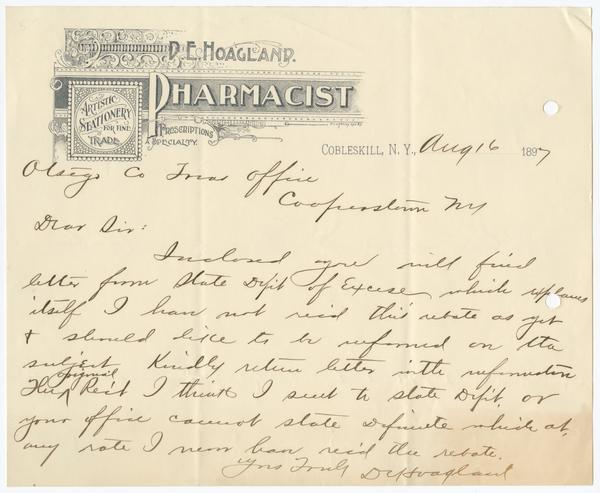 D. E. HOAGLAND.
PHARMACIST
ARTISTIC STATIONERY FOR FINE TRADE
PRESCRIPTIONS A SPECIALTY.
COBLESKILL, N. Y., Aug 16 1897
Otsego Co Treas Office
Cooperstown NY
Dear Sir:
Inclosed you will find
letter from State Dept of Excise which explains
itself I have not recd this rebate as yet
& should like to be informed on the
subject Kindly return letter with information
The original Rect I think I sent to state Dept. or
your office cannot state Definite which at
any rate I never have recd the rebate.
Yrs Truly DEHoagland